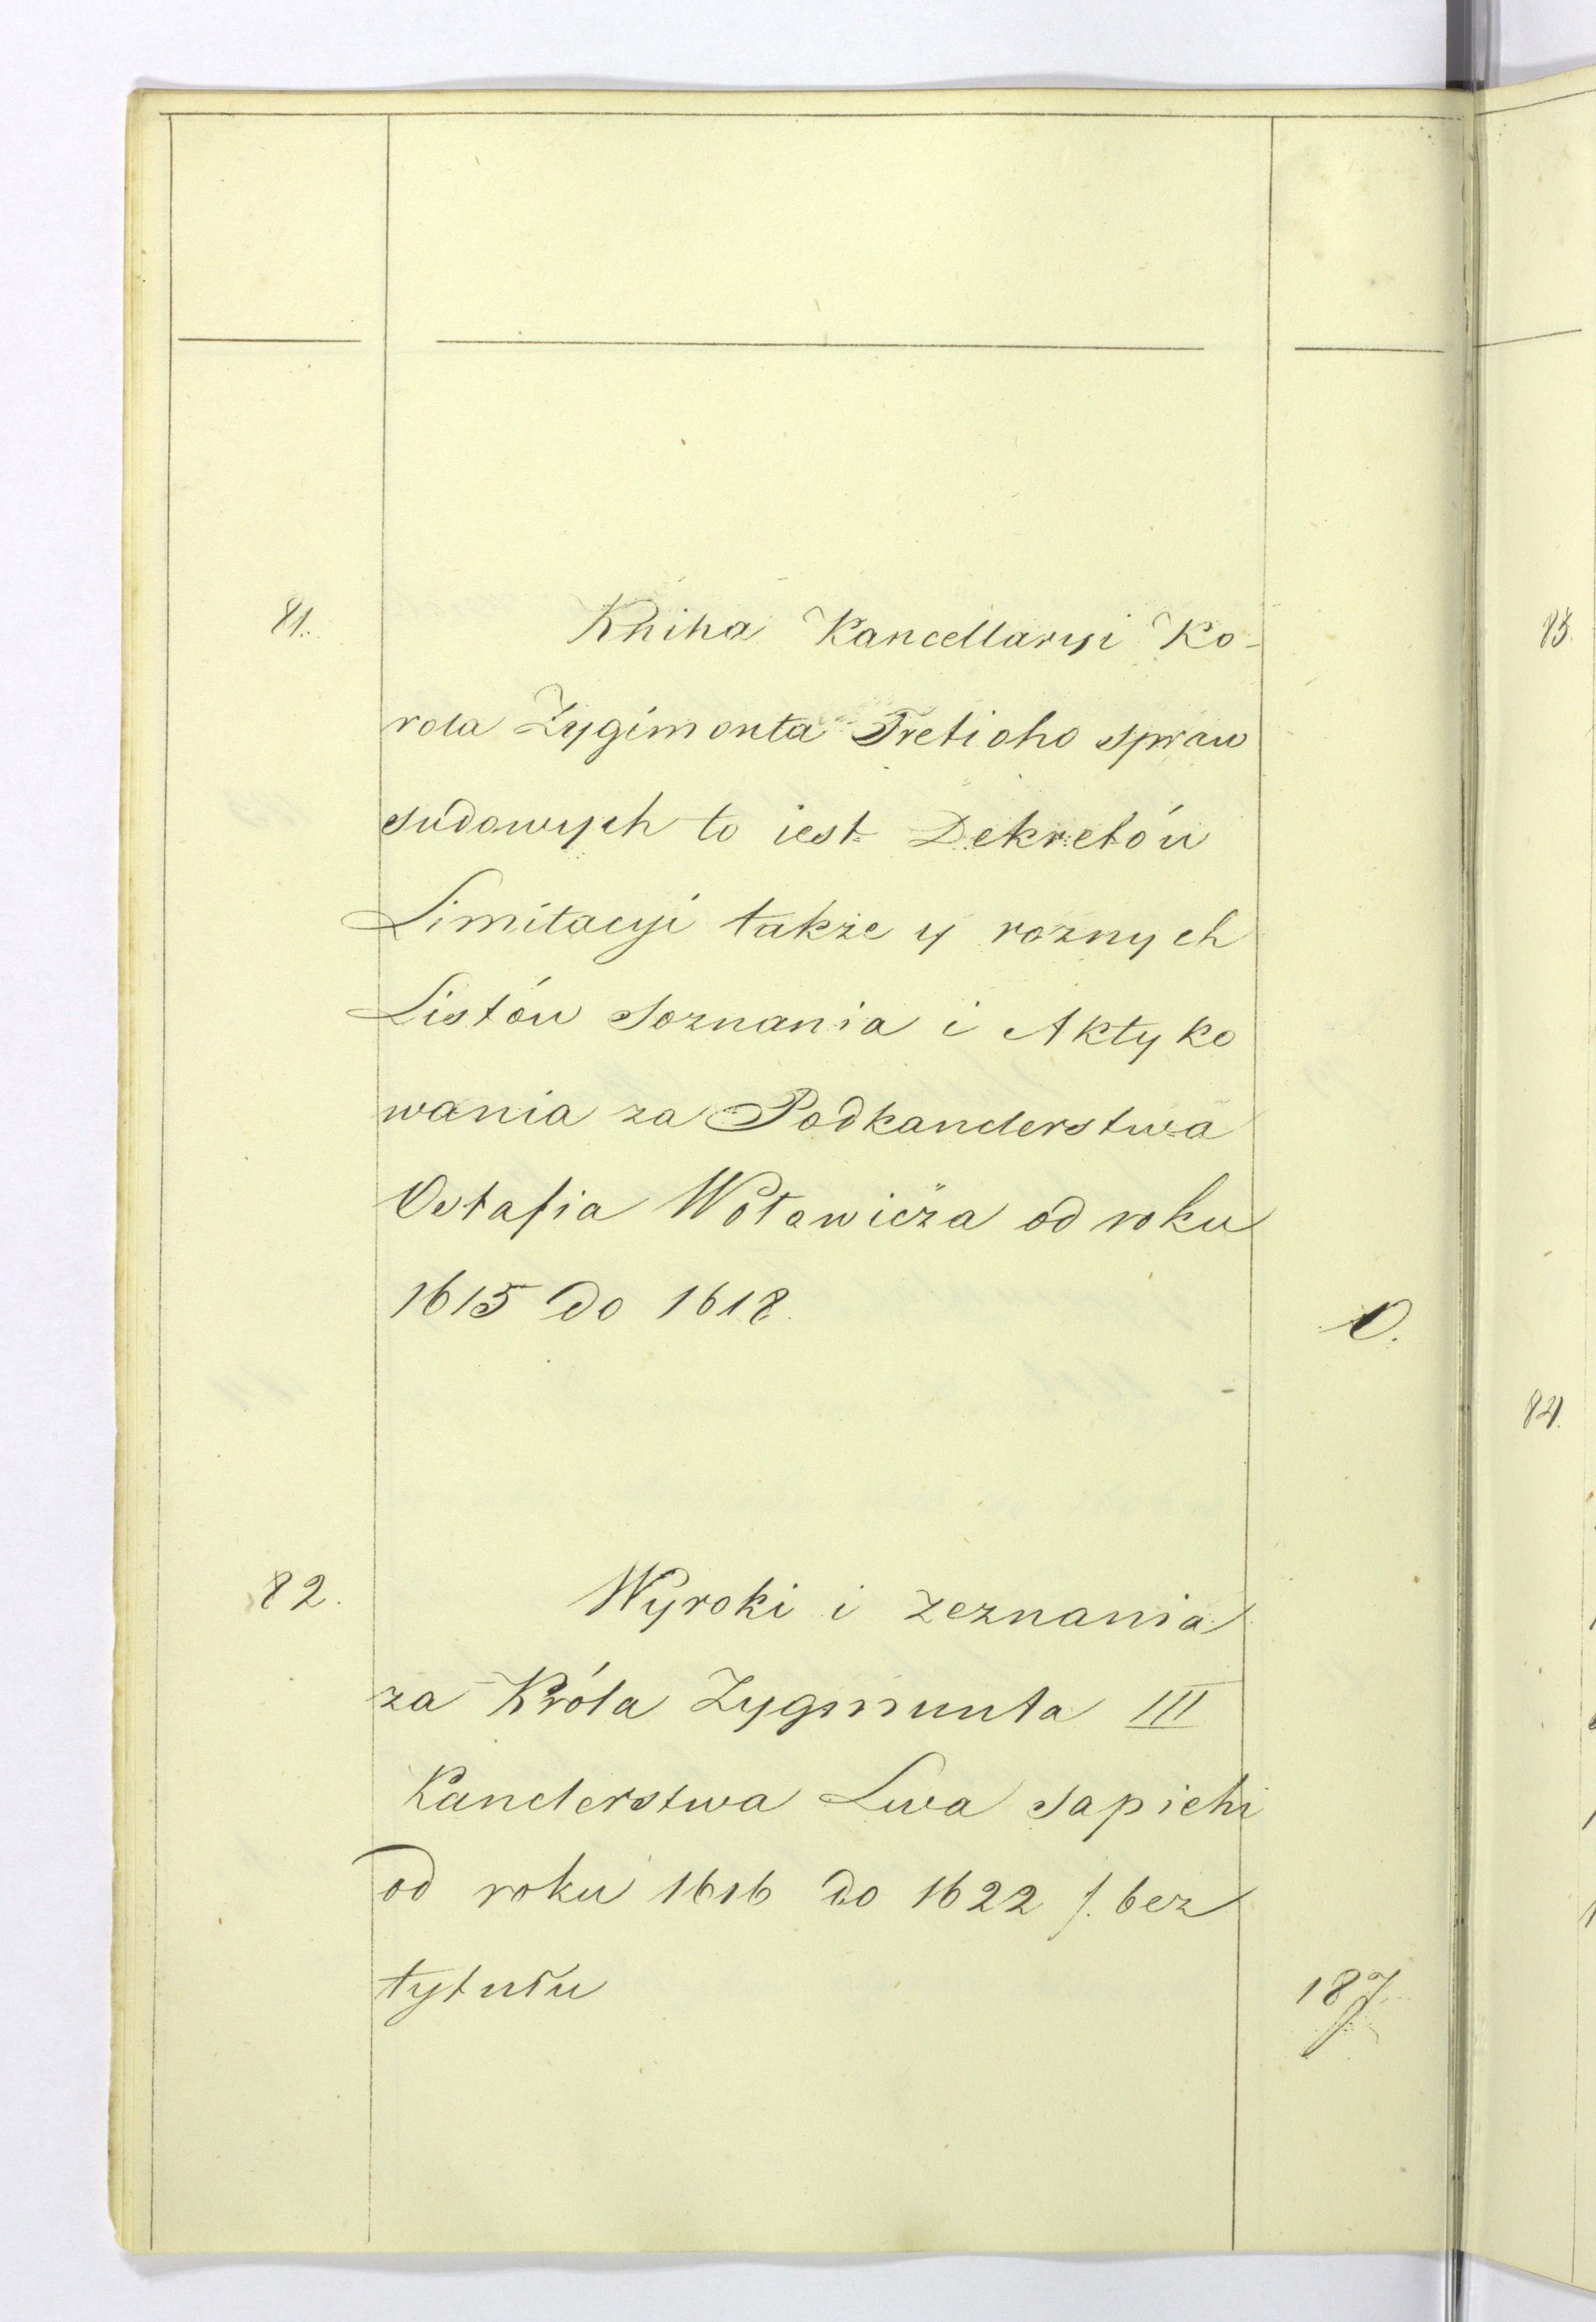 81.
Kniha Kancellaryi Ko-
rola Zygimonta Tretioho spraw
sudowych to iest Dekretów
Limitacyi także y roznych
Listów Soznania i Aktyko
wania za Podkanclerstwa
Ostafia Wołowicza od roku
1615 do 1618.
O.
82.
Wyroki i zeznania
za Króla Zygmunta III
Kanclerstwa Lwa Sapiehi
od roku 1616 do 1622 /. bez
tytułu
187
83.
84.